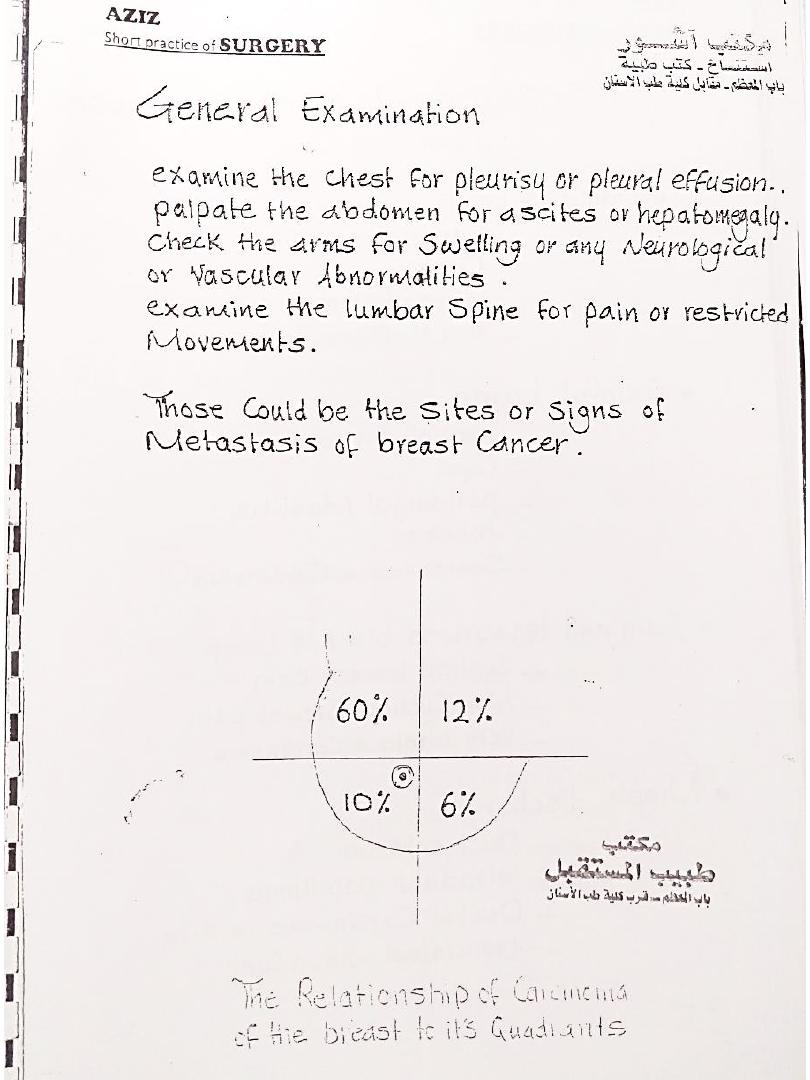 AZIZ
Short practice of SURGERY
مكتب النسور
استنساخ - كتب طبية
باب المعظم - مقابل كلية طب الاسنان
General Examination
examine the chest for pleurisy or pleural effusion..
palpate the abdomen for ascites or hepatomegaly.
Check the arms for Swelling or any Neurological
or Vascular Abnormalities .
examine the lumbar Spine for pain or restricted
Movements.
Those Could be the Sites or Signs of
Metastasis of breast Cancer.
60% 12%
10% 6%
مكتب
طبيب المستقبل
باب المعظم - قرب كلية طب الأسنان
The Relationship of Carcinoma
of the breast to it's Quadrants